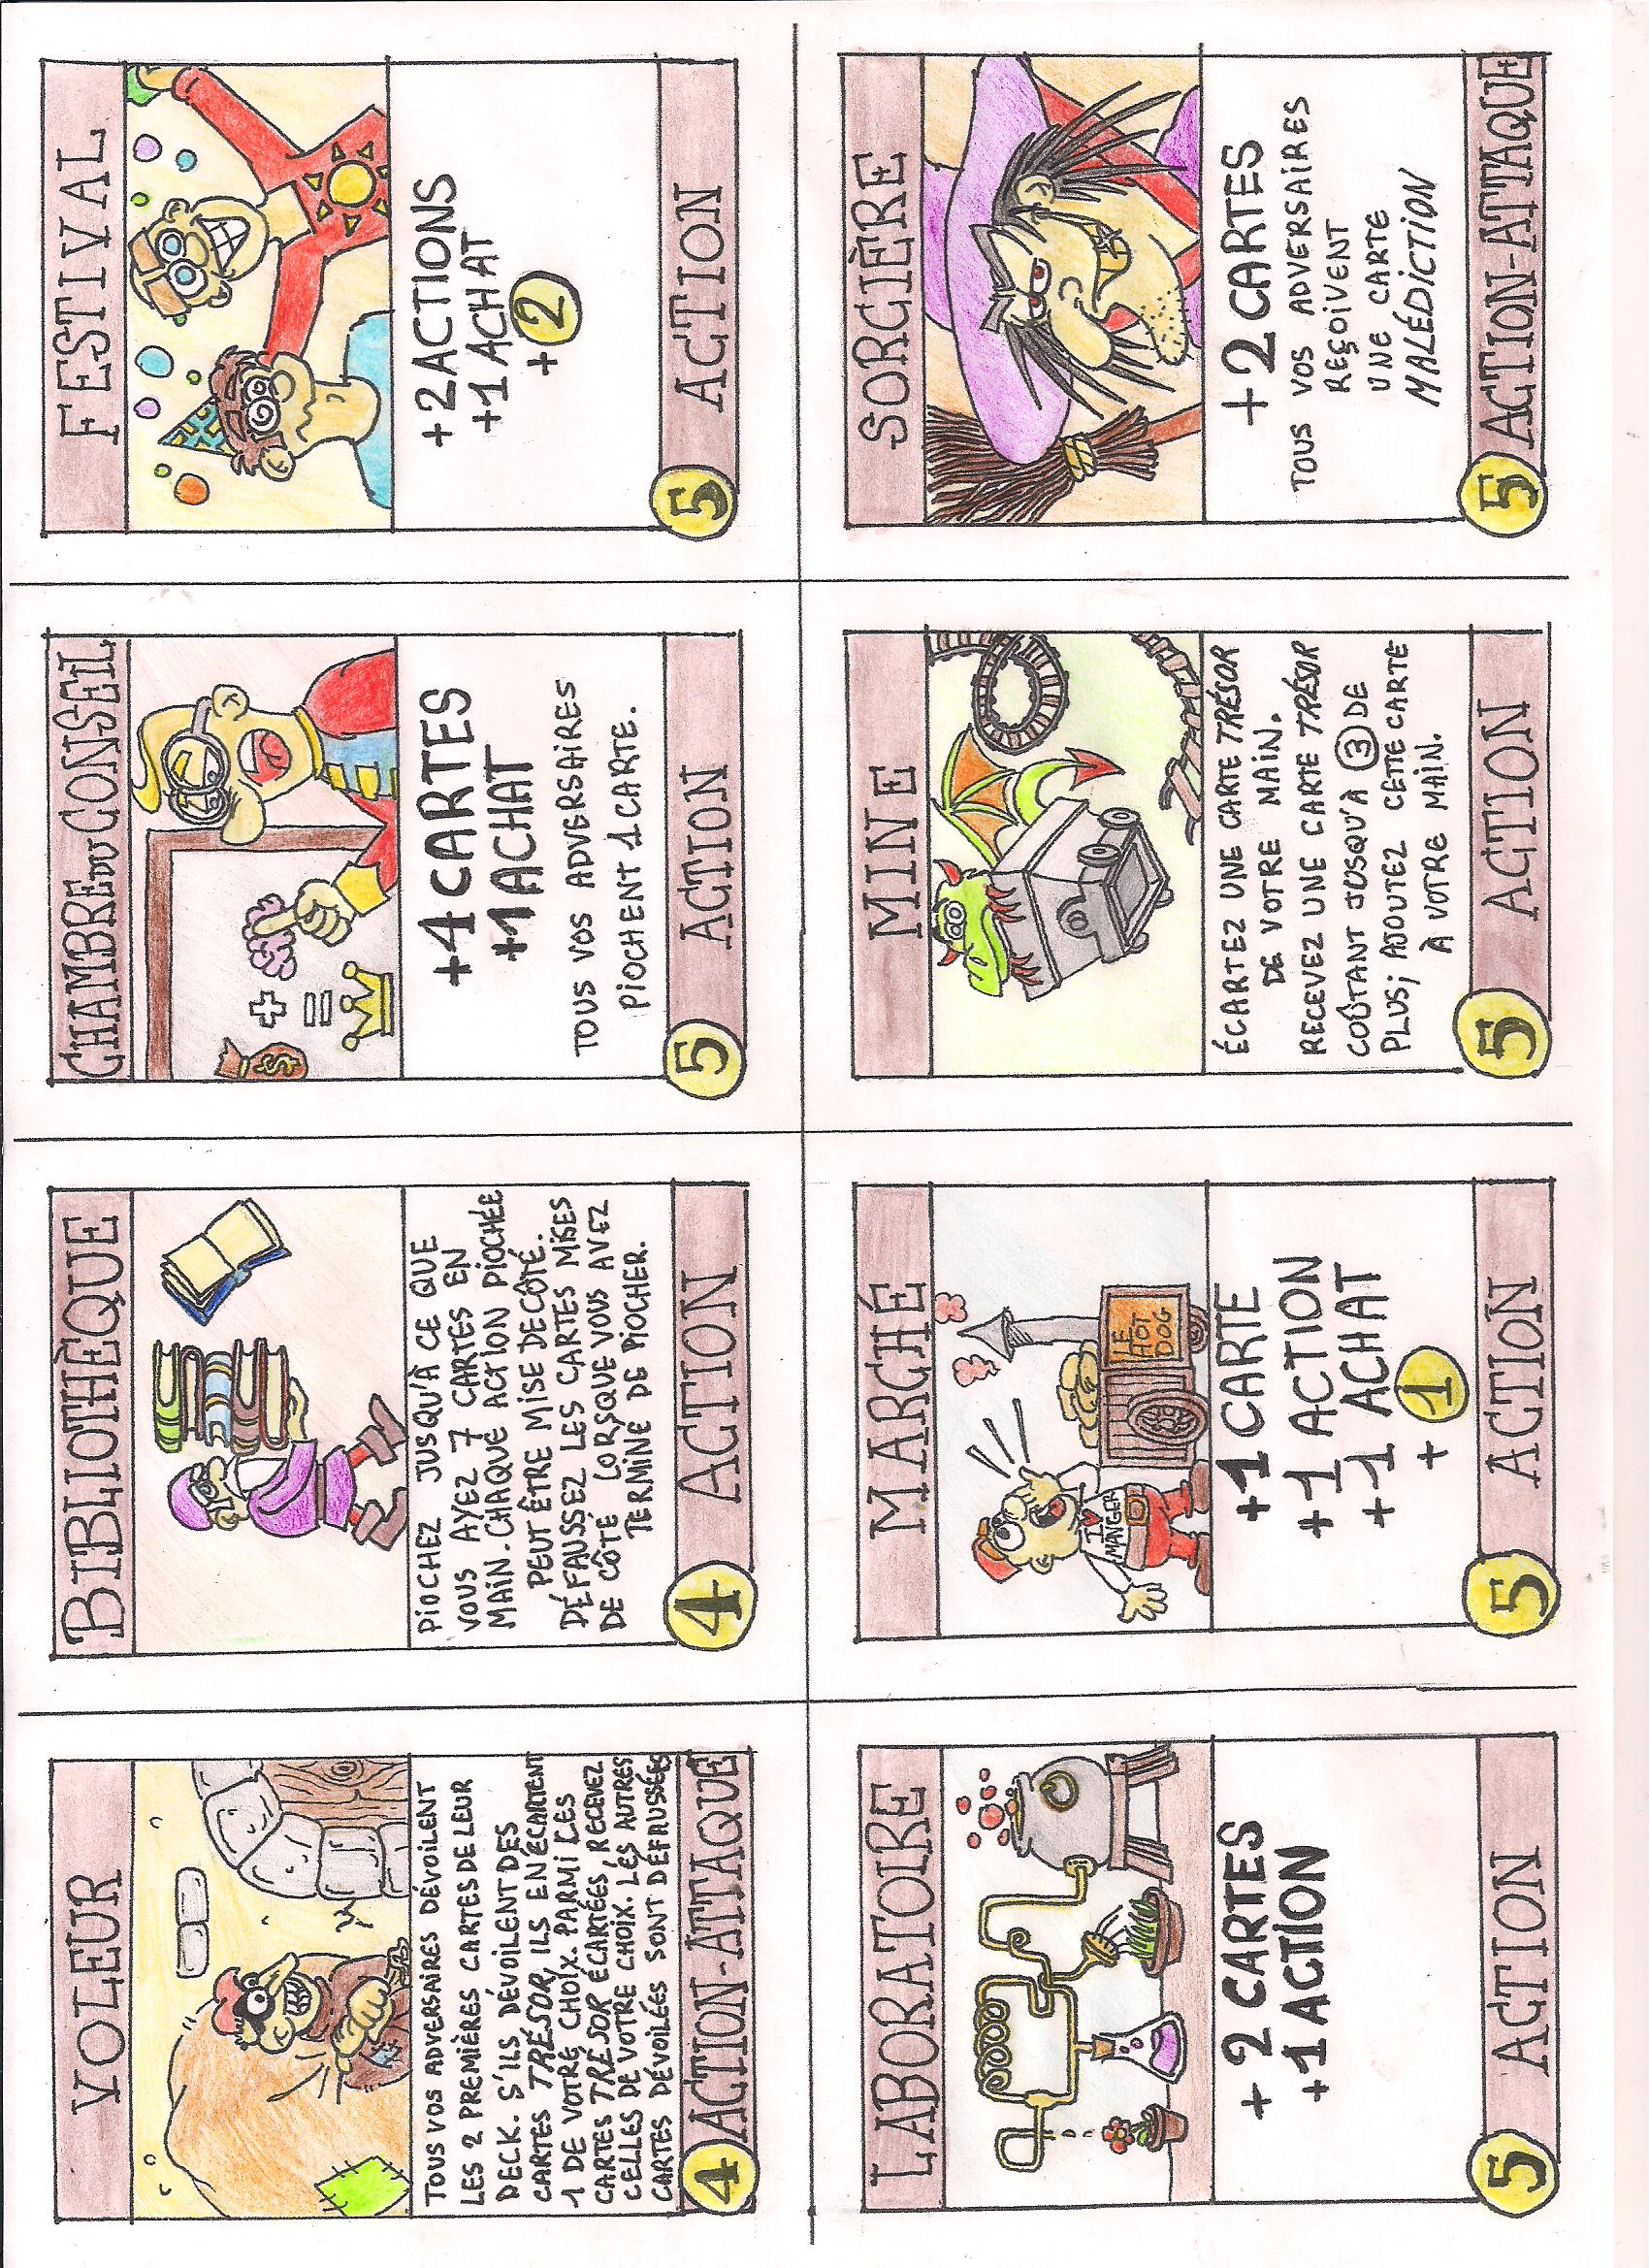 VOLEUR
TOUS VOS ADVERSAIRES DÉVOILENT
LES 2 PREMIÈRES CARTES DE LEUR
DECK. S'ILS DÉVOILENT DES
CARTES TRÉSOR, ILS EN ÉCARTENT
1 DE VOTRE CHOIX. PARMI CES
CARTES TRÉSOR ÉCARTÉES, RECEVEZ
CELLES DE VOTRE CHOIX. LES AUTRES
CARTES DÉVOILÉES SONT DÉFAUSSÉES
4 ACTION-ATTAQUE
BIBLIOTHÈQUE
PIOCHEZ JUSQU'À CE QUE
VOUS AYEZ 7 CARTES EN
MAIN. CHAQUE ACTION PIOCHÉE
PEUT ÊTRE MISE DE CÔTÉ.
DÉFAUSSEZ LES CARTES MISES
DE CÔTÉ LORSQUE VOUS AVEZ
TERMINE DE PIOCHER.
4 ACTION
CHAMBRE DU CONSEIL
$ + =
+4 CARTES
+1 ACHAT
TOUS VOS ADVERSAIRES
PIOCHENT 1 CARTE.
5 ACTION
FESTIVAL
+2 ACTIONS
+1 ACHAT
+2
5 ACTION
LABORATOIRE
+2 CARTES
+1 ACTION
5 ACTION
MARCHÉ
I ♥
MANGER
LE
HOT
DOG
+1 CARTE
+1 ACTION
+1 ACHAT
+1
5 ACTION
MINE
ÉCARTEZ UNE CARTE TRÉSOR
DE VOTRE MAIN.
RECEVEZ UNE CARTE TRÉSOR
COÛTANT JUSQU'À 3 DE
PLUS; AJOUTEZ CETTE CARTE
À VOTRE MAIN.
5 ACTION
SORCIÈRE
+2 CARTES
TOUS VOS ADVERSAIRES
REÇOIVENT
UNE CARTE
MALÉDICTION
5 ACTION-ATTAQUE